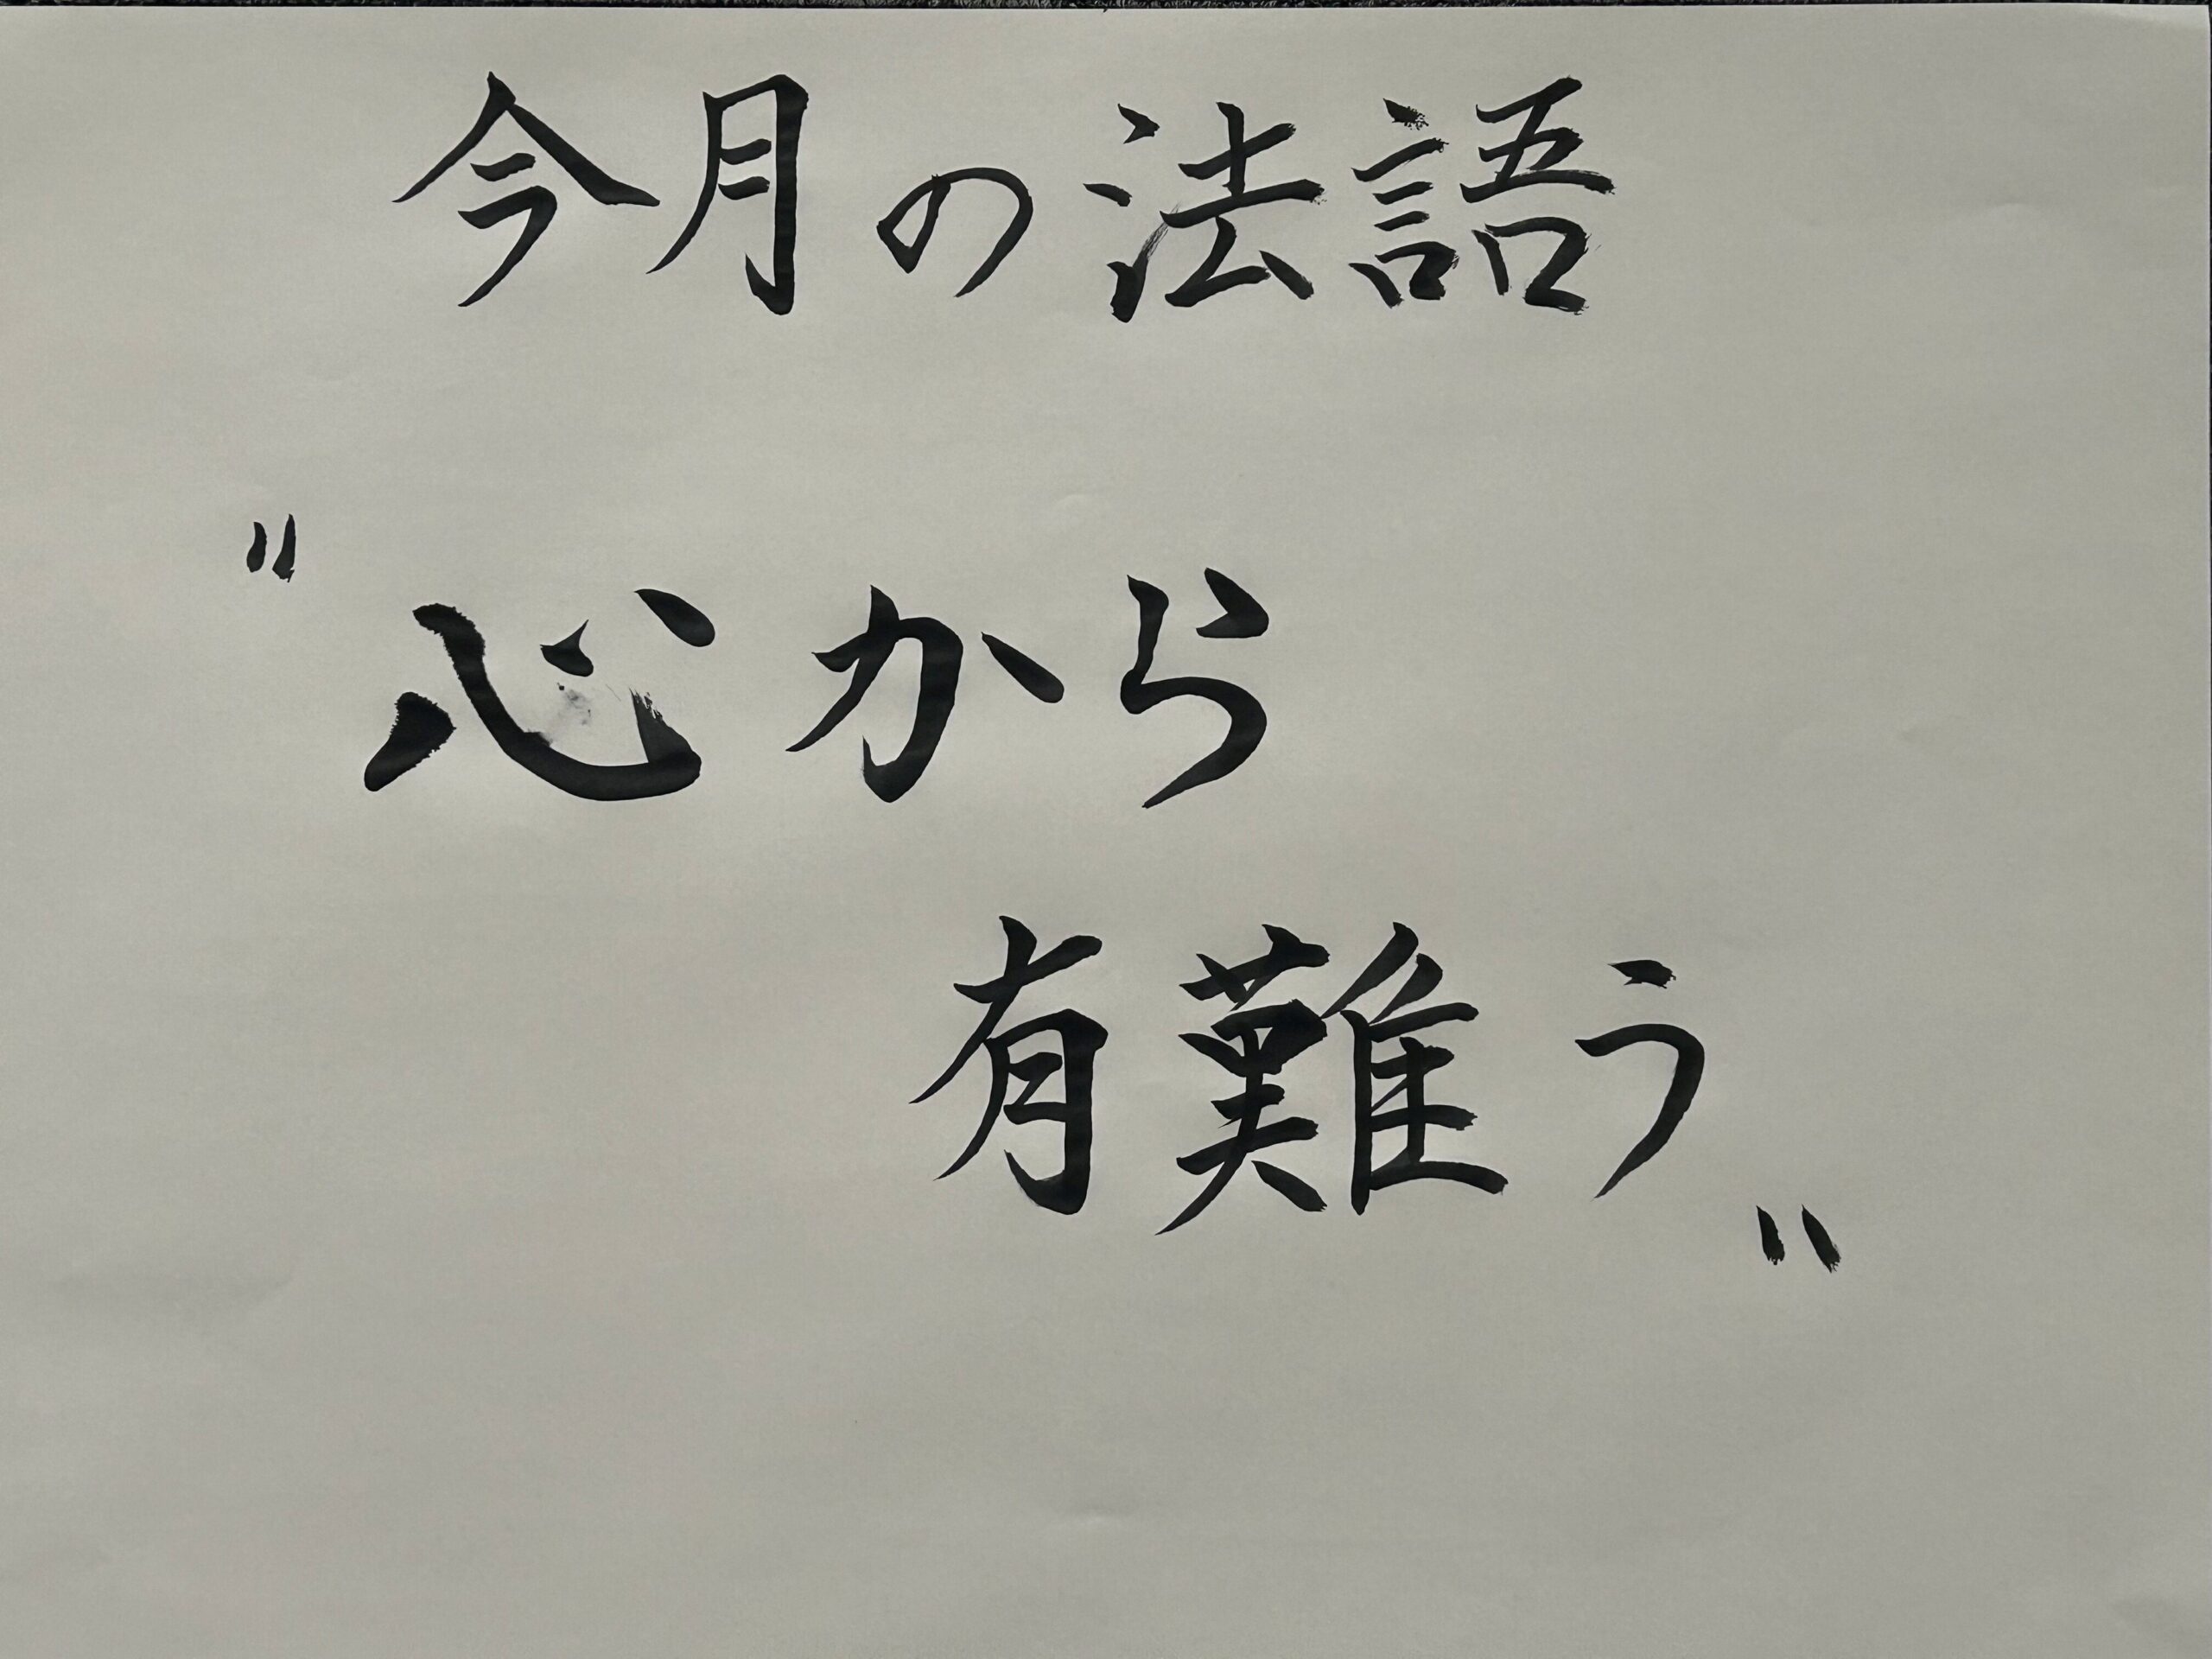 今月の法語
"心から
有難う"